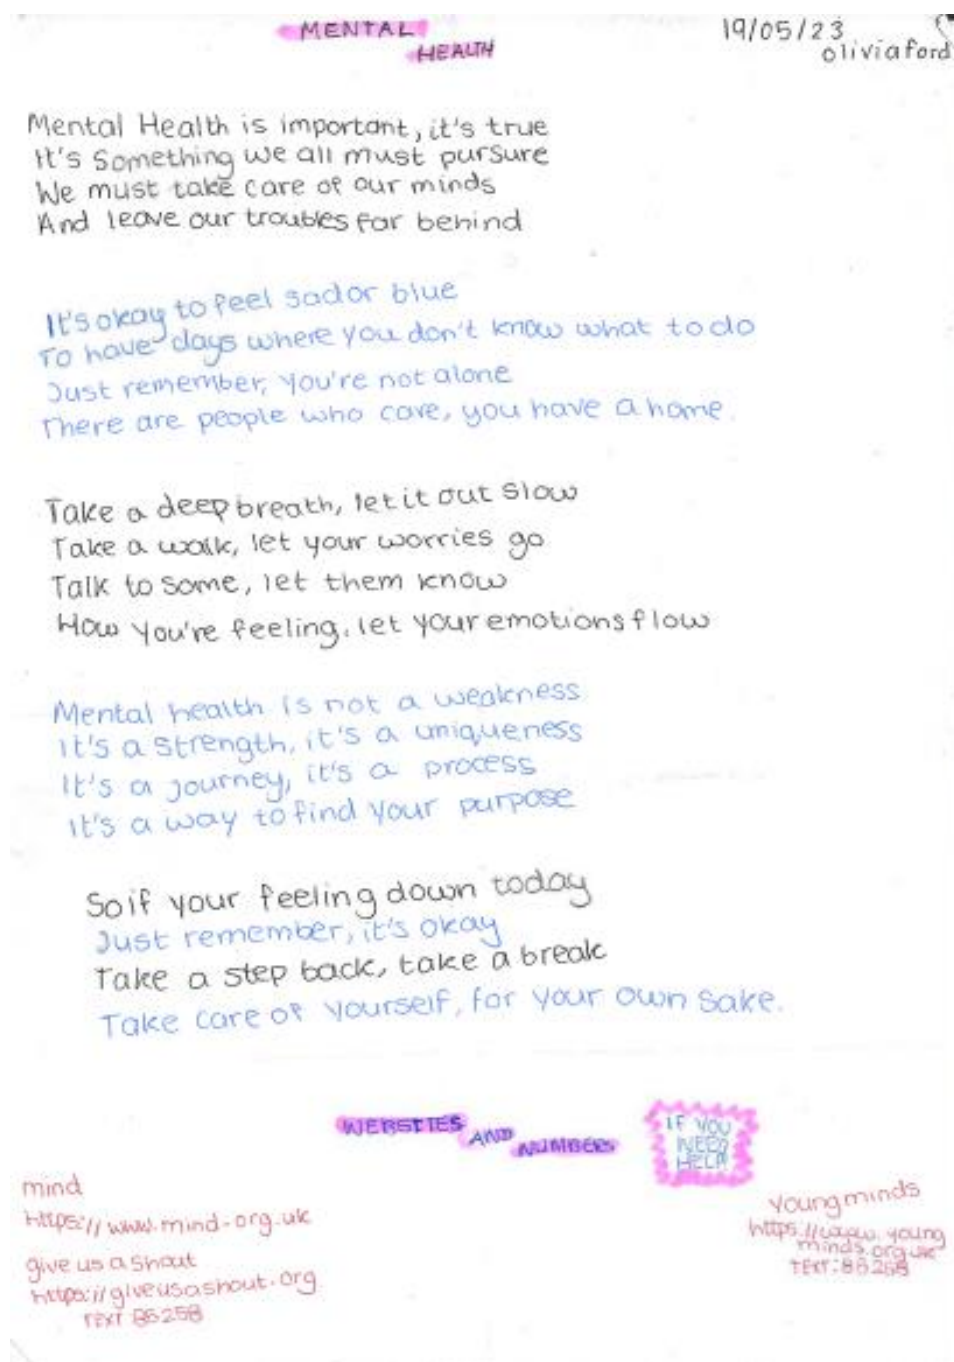 MENTAL
HEALTH
19/05/23
olivia ford
Mental Health is important, it's true
It's Something we all must pursure
We must take care of our minds
And leave our troubles far behind
It's okay to feel sad or blue
To have days where you don't know what to do
Just remember, you're not alone
There are people who care, you have a home.
Take a deep breath, let it out slow
Take a walk, let your worries go
Talk to some, let them know
How you're feeling, let your emotions flow
Mental health is not a weakness
It's a strength, it's a uniqueness
It's a journey, it's a process
It's a way to find your purpose
So if your feeling down today
Just remember, it's okay
Take a step back, take a break
Take care of yourself, for your own sake.
WEBSTIES
AND
NUMBERS
IF YOU
NEED
HELP
mind
https://www.mind-org.uk
give us a shout
https://giveusashout.org
TEXT 85258
Young minds
https://www.young
minds.org.uk
TEXT: